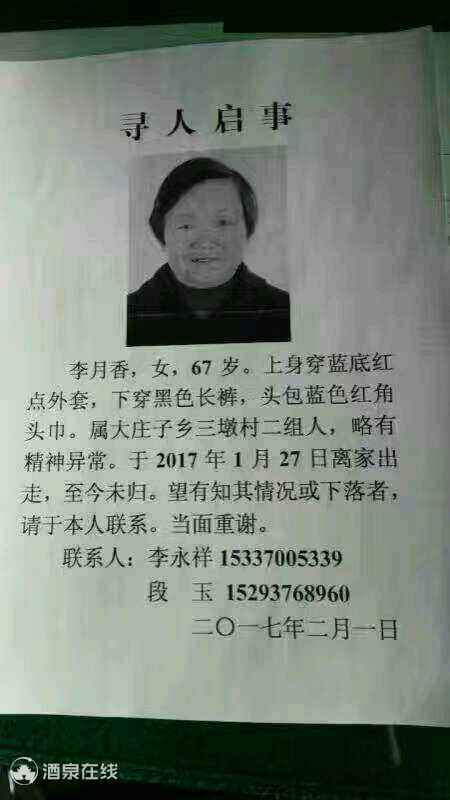 寻人启事
李月香，女，67 岁。上身穿蓝底红
点外套，下穿黑色长裤，头包蓝色红角
头巾。属大庄子乡三墩村二组人，略有
精神异常。于 2017 年 1 月 27 日离家出
走，至今未归。望有知其情况或下落者，
请于本人联系。当面重谢。
联系人：李永祥 15337005339
段　玉 15293768960
二〇一七年二月一日
酒泉在线